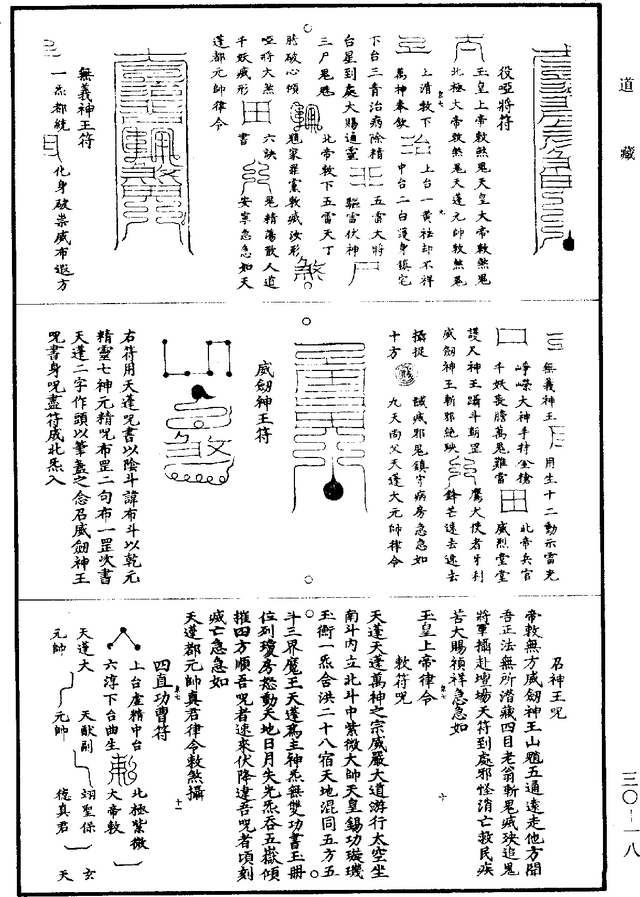 道藏
三〇—一八
役啞將符
玉皇上帝敕煞鬼天皇大帝敕煞鬼
北極大帝敕煞鬼天蓬元帥敕煞鬼
上清敕下
上台一黃祛却不祥
萬神奉敕
中台二白護身鎮宅
下台三青治病除精
一五雷大將
台星到處大賜通靈
驅雷伏神
三尸鬼魁
北帝敕下五雷天丁
啞將大煞
六訣
鬼精蕩散人道
千妖滅形
書
安寧急急如天
蓬都元帥律令
無義神王符
一炁都統
化身破祟威布遐方
無義神王
用生十二動示雷光
崢嶸大神手持金槍
北帝兵官
千妖喪膽萬鬼難當
威烈堂堂
護尺神王躡斗朝罡
鷹犬使者牙利
威劍神王斬邪絕殃
鋒芒遠去遠去
攝捉
誠滅邪鬼鎮守病房急急如
十方
九天尚父天蓬大元帥律令
威劍神王符
右符用天蓬呪書以陰斗諱布斗以乾元
精靈七神元精呪布罡二句布一罡次書
天蓬二字作頭以筆蓋之念召威劍神王
呪書身呪盡符成北炁入
召神王呪
帝敕無方威劍神王山魈五通遠走他方開
吾正法無所潛藏四目老翁斬鬼滅殃追鬼
將軍攝赴壇場天符到處邪怪消亡救民疾
苦大賜禎祥急急如
玉皇上帝律令
敕符呪
天蓬天蓬萬神之宗威嚴大道游行太空坐
南斗内立北斗中紫微大帥天皇錫功璇璣
玉衡一炁含洪二十八宿天地混同五方五
斗三界魔王天蓬為主神炁無雙功書玉册
位列瓊房怒動天地日月失光炁吞五嶽傾
摧四方順吾呪者速來伏降違吾呪者頃刻
滅亡急急如
天蓬都元帥真君律令敕煞攝
四直功曹符
上台虛精中台
北極紫微
六淳下台曲生
大帝敕
天蓬大
天猷副
翊聖保
玄
元帥
元帥
德真君
天